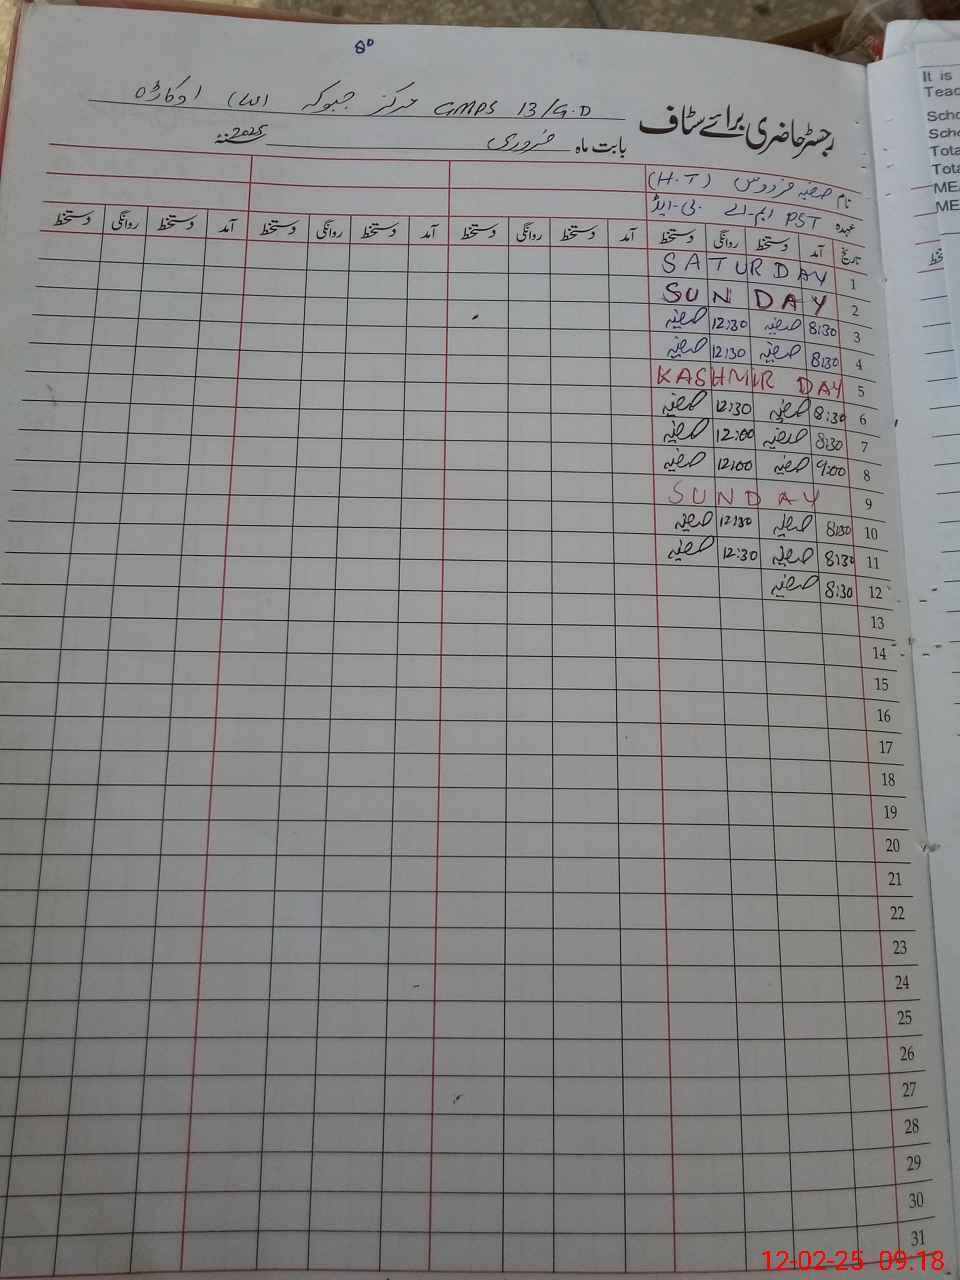 8º
رجسٹر حاضری برائے سٹاف GMPS 13/G.D مرکز جبوکہ اوکاڑہ
بابت ماہ فروری 2025ء
نام صفیہ فردوس (H.T)
عہدہ PST ایم۔اے بی۔ایڈ
تاریخ آمد دستخط روانگی دستخط آمد دستخط روانگی دستخط آمد دستخط روانگی دستخط آمد دستخط روانگی دستخط
1 SATURDAY
2 SUNDAY
3 8:30 صفیہ 12:30 صفیہ
4 8:30 صفیہ 12:30 صفیہ
5 KASHMIR DAY
6 8:30 صفیہ 12:30 صفیہ
7 8:30 صفیہ 12:00 صفیہ
8 9:00 صفیہ 12:00 صفیہ
9 SUNDAY
10 8:30 صفیہ 12:30 صفیہ
11 8:30 صفیہ 12:30 صفیہ
12 8:30 صفیہ
13
14
15
16
17
18
19
20
21
22
23
24
25
26
27
28
29
30
31
It is
Teac
Scho
Scho
Tota
Tota
ME
ME
12-02-25 09:18